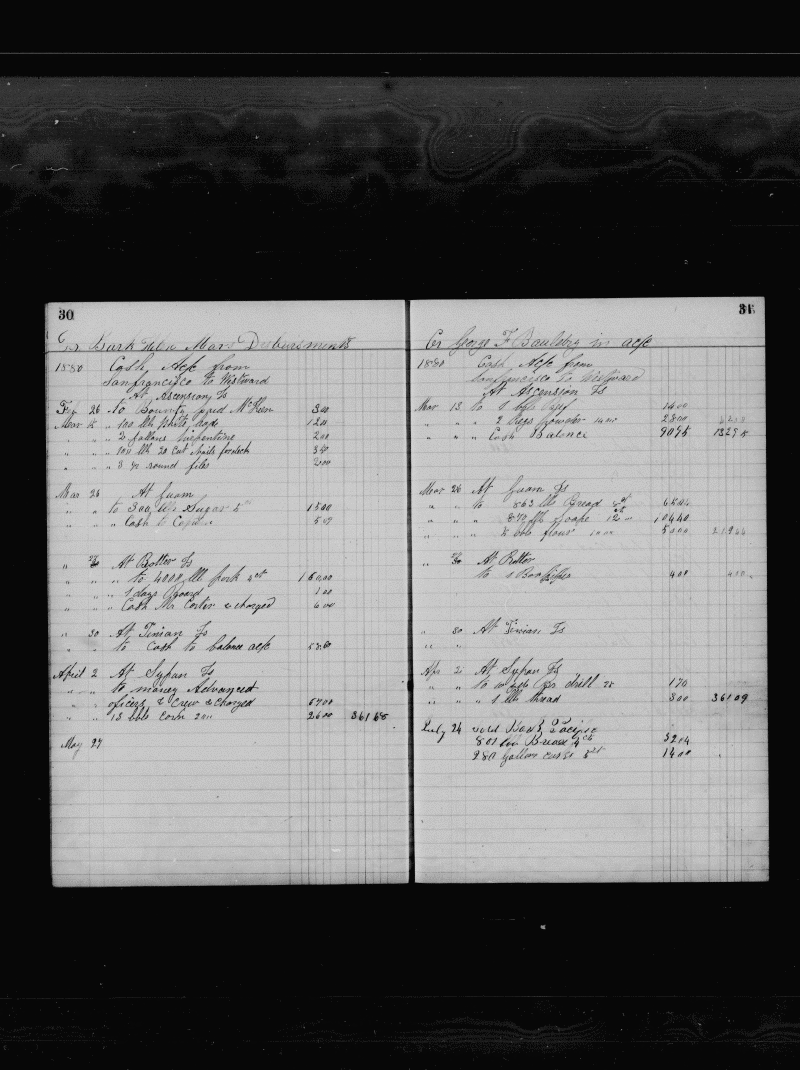 30
Dr Bark Helen Mar's Disbursments
1880 Cash Acc from
Sanfrancisco to Westward
At Ascension Is
26 to Bounty paid 3 00
Mar " " 100 lbs White 12 00
" " " 2 gallons turpentine 2 00
" " " 100 lbs 20 Cut Nails for deck 3 50
" " " 3 round files 2 00
Mar 26 At Guam
" " to 300 lbs Sugar 5 15 00
" " " Cash to
" 30 At Rotter Is
" " " to 4000 lbs pork 4 ct 160 00
" " " 1 days board 1 00
" " " Cash Mr Carter & charged 6 00
" 30 At Tinian Is
" " to Cash to balance acc
April 2 At Sypan Is
" " to money Advanced
" " oficers & Crew & charged 57 00
" " 13 bbls Corn 200 26 00 361 65
May 27
31
Cr George F Bauldry in acc
1880 Cash Acc from
Sanfrancisco to Westward
At Ascension Is
Mar 13 to 1 14 00
" " " 2 Kegs powder 14 00 28 00
" " " Cash Balance 90 75 132 75
Mar 26 At Guam Is
" " to 863 lbs Bread
" " " 870 lbs soape 12 104 40
" " " bbls flour 10 00 50 00
" 30 At Rotter
to 1 Box 4 00 4 00
" 30 At Tinian Is
" "
Apr 2 At Sypan Is
" " to drill 1 70
" " " 1 lb thread 3 00 361 09
July 24 sold Bark Pacific
801 lbs Bread 4 cts 32 04
280 gallons 5 ct 14 00